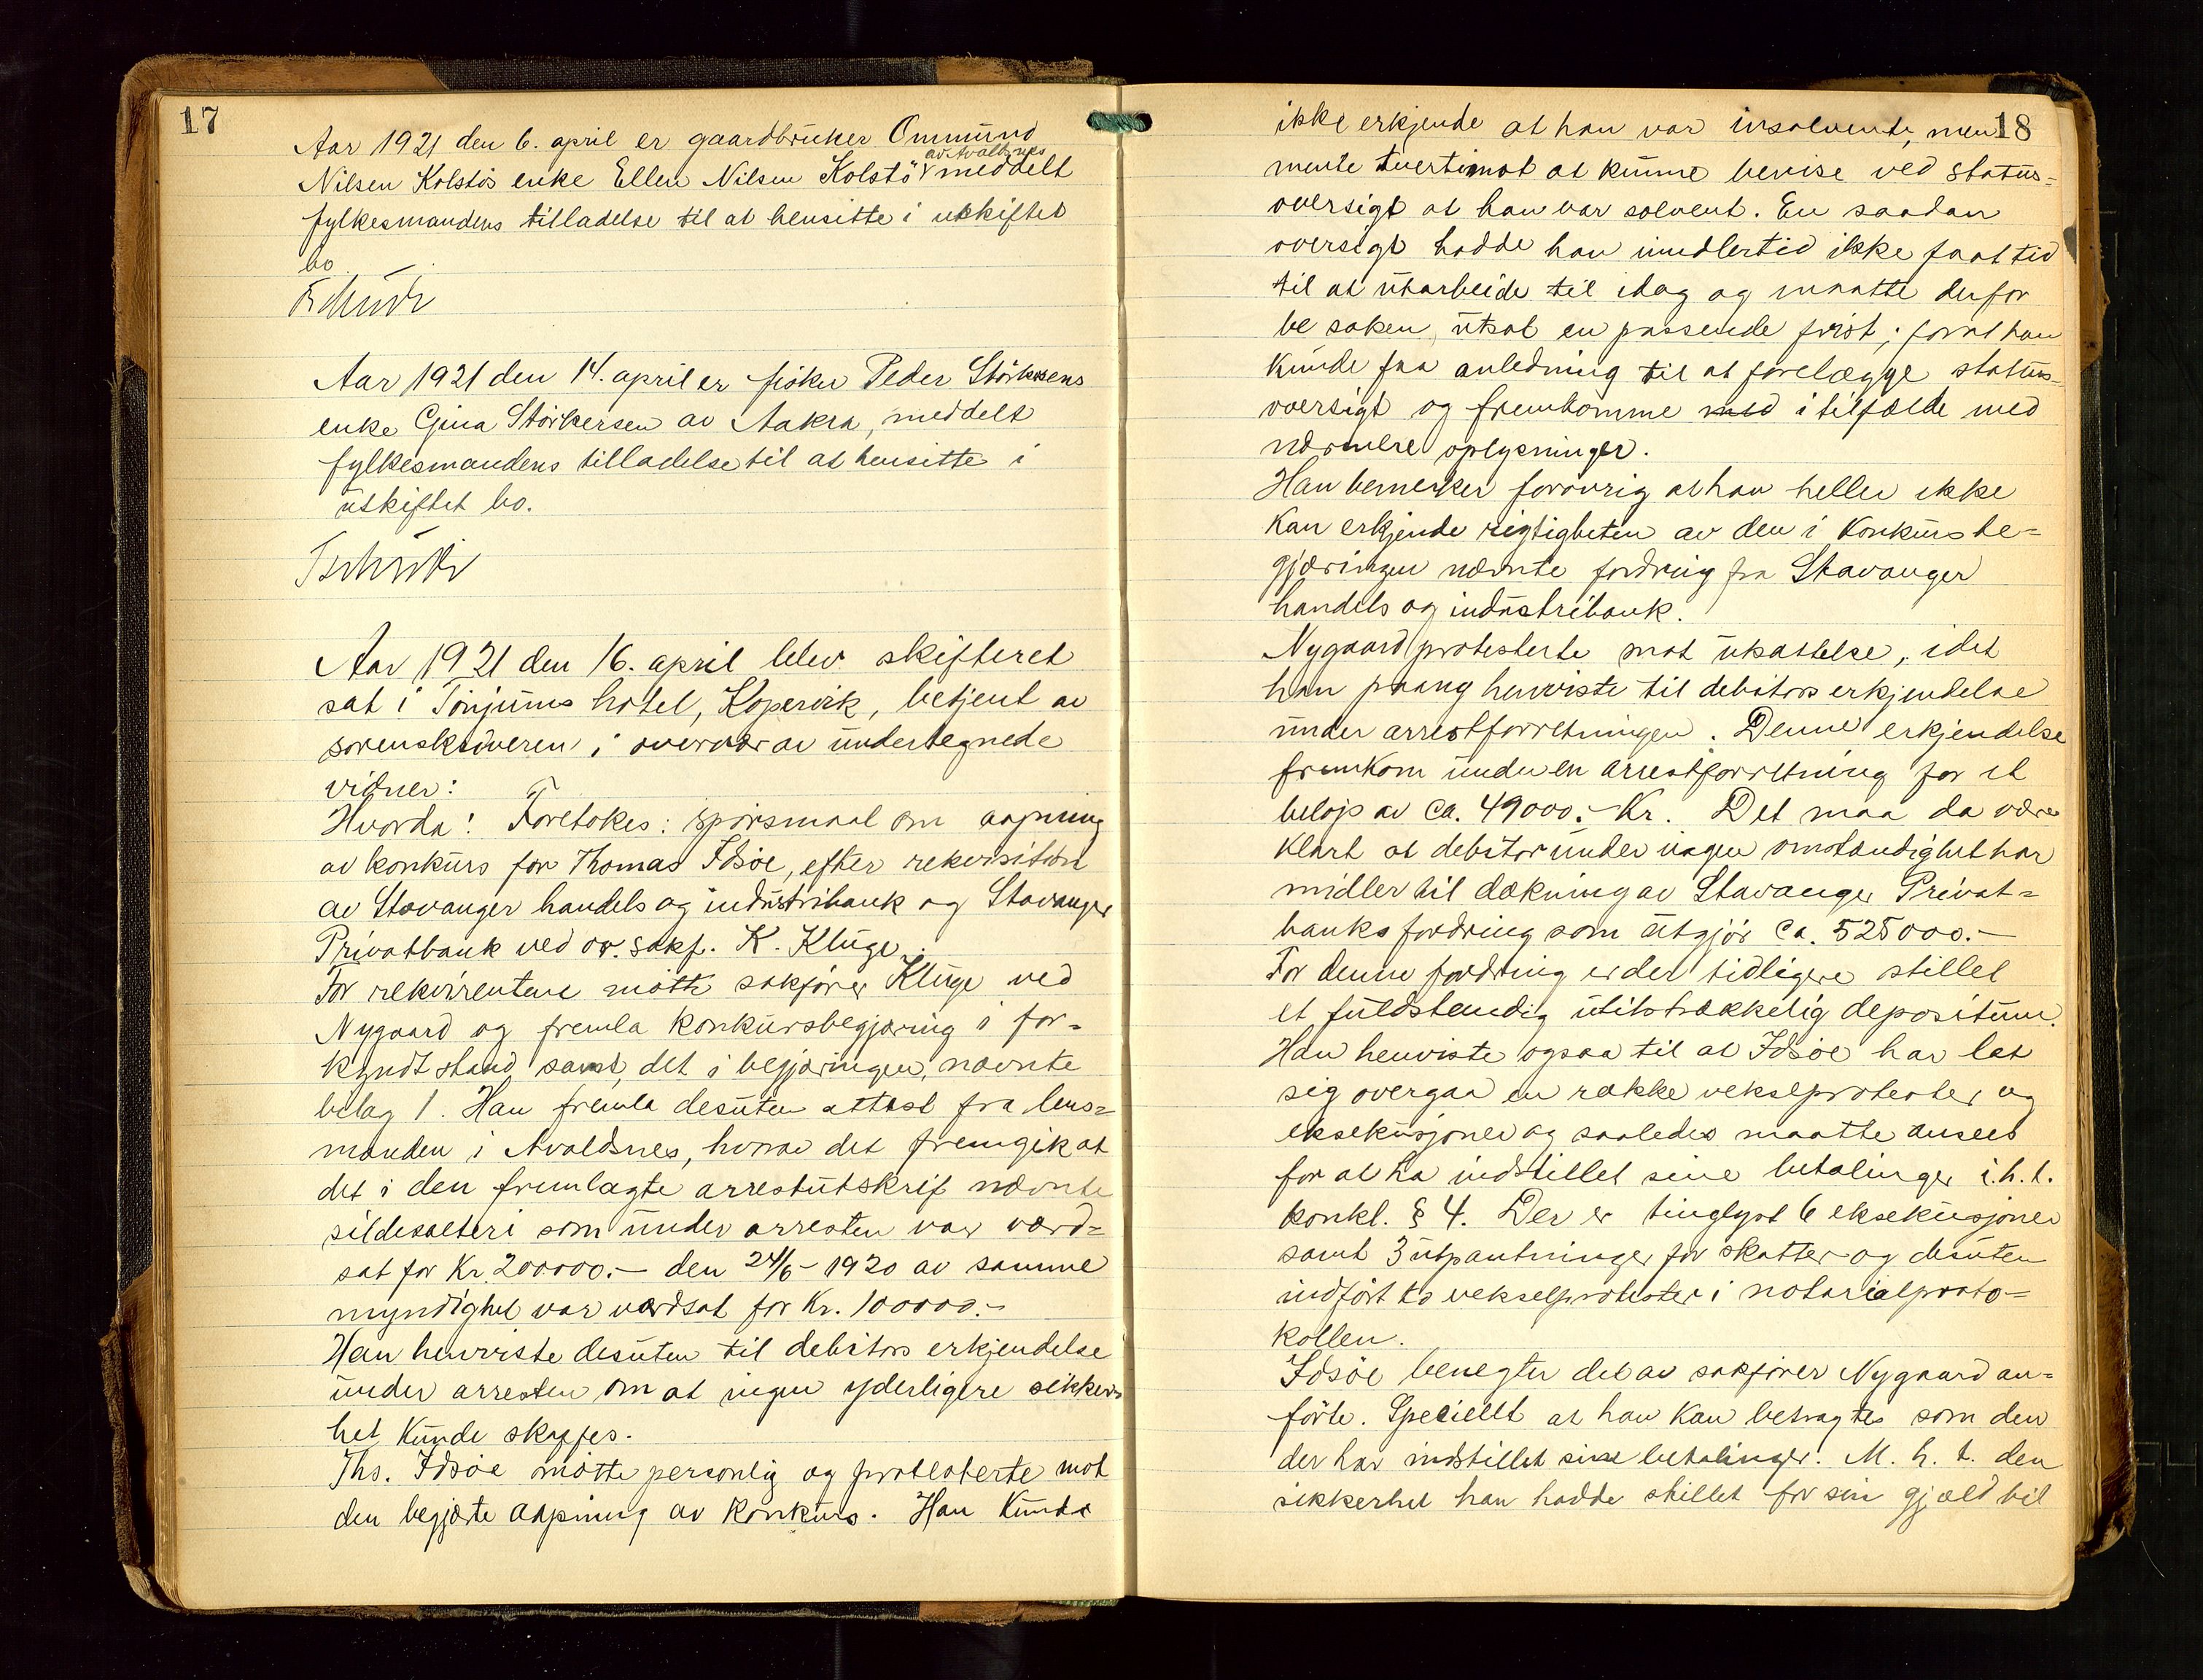 17
Aar 1921 den 6. april er gaardbruker Ommund
av Avaldsnes
Nilsen Kolstös enke Ellen Nilsen Kolstö meddelt
fylkesmandens tilladelse til at hensitte i utskiftet
bo
Aar 1921 den 14. april er fisker Peder Störkersens
enke Gina Störkersen av Aakra, meddelt
fylkesmandens tilladelse til at hensitte i
uskiftet bo.
Aar 1921 den 16. april blev skifteret
sat i Tönjums hotel, Kopervik, betjent av
sorenskriveren i overvær av undertegnede
vidner:
Hvorda: Foretokes: spörsmaal om aapning
av konkurs for Thomas Idsöe, efter rekvisition
av Stavanger handels og industribank og Stavanger
Privatbank ved or. sakf. K. Kluge.
For rekvirentene mötte sakförer Kluge ved
Nygaard og fremla konkursbegjæring i for-
kyndt stand samt det i begjæringen nævnte
bilag 1. Han fremla desuten attest fra lens-
manden i Avaldsnes, hvorav det fremgik at
det i den fremlagte arrestutskrift nævnte
sildesalteri som under arresten var værd-
sat for Kr. 200000.- den 24/6-1920 av samme
myndighet var værdsat for Kr. 100000.-
Han henviste desuten til debitors erkjendelse
under arresten om at ingen yderligere sikker-
het kunde skaffes.
Ths. Idsöe mötte personlig og protesterte mot
den begjærte aapning av konkurs. Han kunde
18
ikke erkjende at han var insolvent, men
mente tvertimot at kunne bevise ved status-
oversigt at han var solvent. En saadan
oversigt hadde han imidlertid ikke faat tid
til at utarbeide til idag og maatte derfor
be saken utsat en passende frist, forat han
kunde faa anledning til at forelægge status-
oversigt og fremkomme med i tilfælde med
nærmere oplysninger.
Han bemerker forövrig at han heller ikke
kan erkjende rigtigheten av den i konkursbe-
gjæringen nævnte fordring fra Stavanger
handels og industribank.
Nygaard protesterte mot utsættelse, idet
han paany henviste til debitors erkjendelse
under arrestforretningen. Denne erkjendelse
fremkom under en arrestforretning for et
belöp av ca. 49000.- Kr. Det maa da være
klart at debitor under ingen omstændighet har
midler til dækning av Stavanger Privat-
banks fordring som utgjör ca. 525000.-
For denne fordring er der tidligere stillet
et fuldstændig utilstrækkelig depositum.
Han henviste ogsaa til at Idsöe har lat
sig overgaa en række vekselprotester og
eksekusjoner og saaledes maatte ansees
for at ha indstillet sine betalinger i.h.t.
konkl. § 4. Der er tinglyst 6 eksekusjoner
samt 3 utpantninger for skatter og desuten
indfört to vekselprotester i notarialproto-
kollen.
Idsöe benegter det av sakförer Nygaard an-
förte. Specielt at han kan betragtes som den
der har indstillet sine betalinger. M. h. t. den
sikkerhet han hadde stillet for sin gjæld til